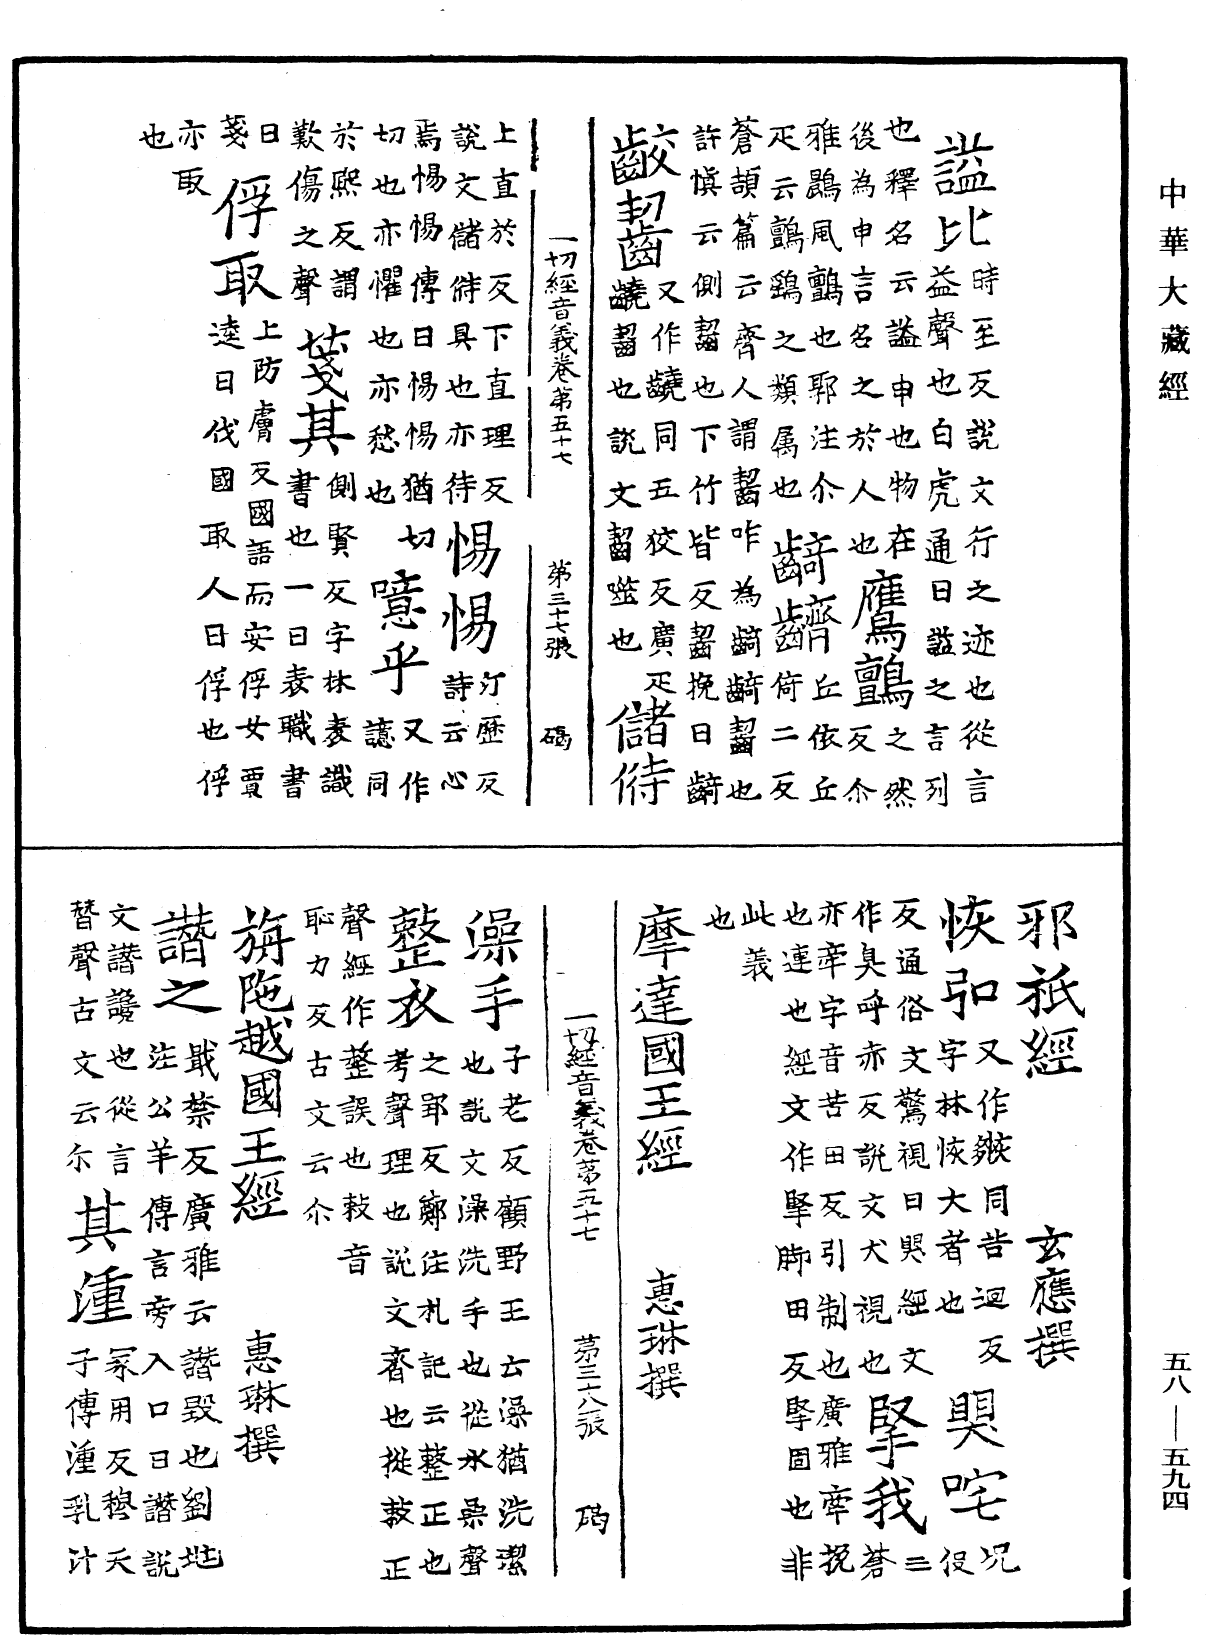 中華大藏經
謚比時至反說文行之迹也從言
益聲也白虎通曰謚之言列
也釋名云謚申也物在
後為申言名之於人也
鷹鸇之然反尒
雅鷐風鸇也郭注尒
疋云鸇鷂之類属也
齮齊丘依丘
倚二反
蒼頡篇云齊人謂齧咋為齮齮齧也
許慎云側齧也下竹皆反齧挽曰齮
齩齧又作䶧同五狡反廣疋
䶧齧也說文齧噬也
儲偫
一切經音義卷第五十七 第三十七張 碼
上直於反下直理反
說文儲偫具也亦待
惕惕汀歷反
詩云心
焉惕惕傳曰惕惕猶切
切也亦懼也亦愁也
噫乎又作
譩同
於熙反謂
歎傷之聲
䇳其側賢反字林表識
書也一曰表職書
曰
䇳
俘取上防膚反國語而安俘女賈
逵曰伐國取人曰俘也俘
亦取
也
邪祇經 玄應撰
恢弘又作㷇同苦迴反
字林恢大者也
狊咤
況
役
反通俗文驚視曰狊經文
作臭呼赤反說文犬視也
掔我三
蒼
亦牽字音苦田反引制也廣雅牽挽
也連也經文作掔脚田反掔固也非
此義
也
摩達國王經 惠琳撰
一切經音義卷第五十七 第三十八張 碼
澡手子老反顧野王云澡猶洗潔
也說文澡洗手也從水喿聲
整衣之郢反鄭注札記云整正也
考聲理也說文齊也從敕正
聲經作㨖誤也敕音
恥力反古文云尒
旃陁越國王經 惠琳撰
譖之戢禁反廣雅云譖毀也劉兆
注公羊傳言旁入口曰譖說
文譖讒也從言
朁聲古文云尒
其湩冢用反穆天
子傳湩乳汁
五八—五九四